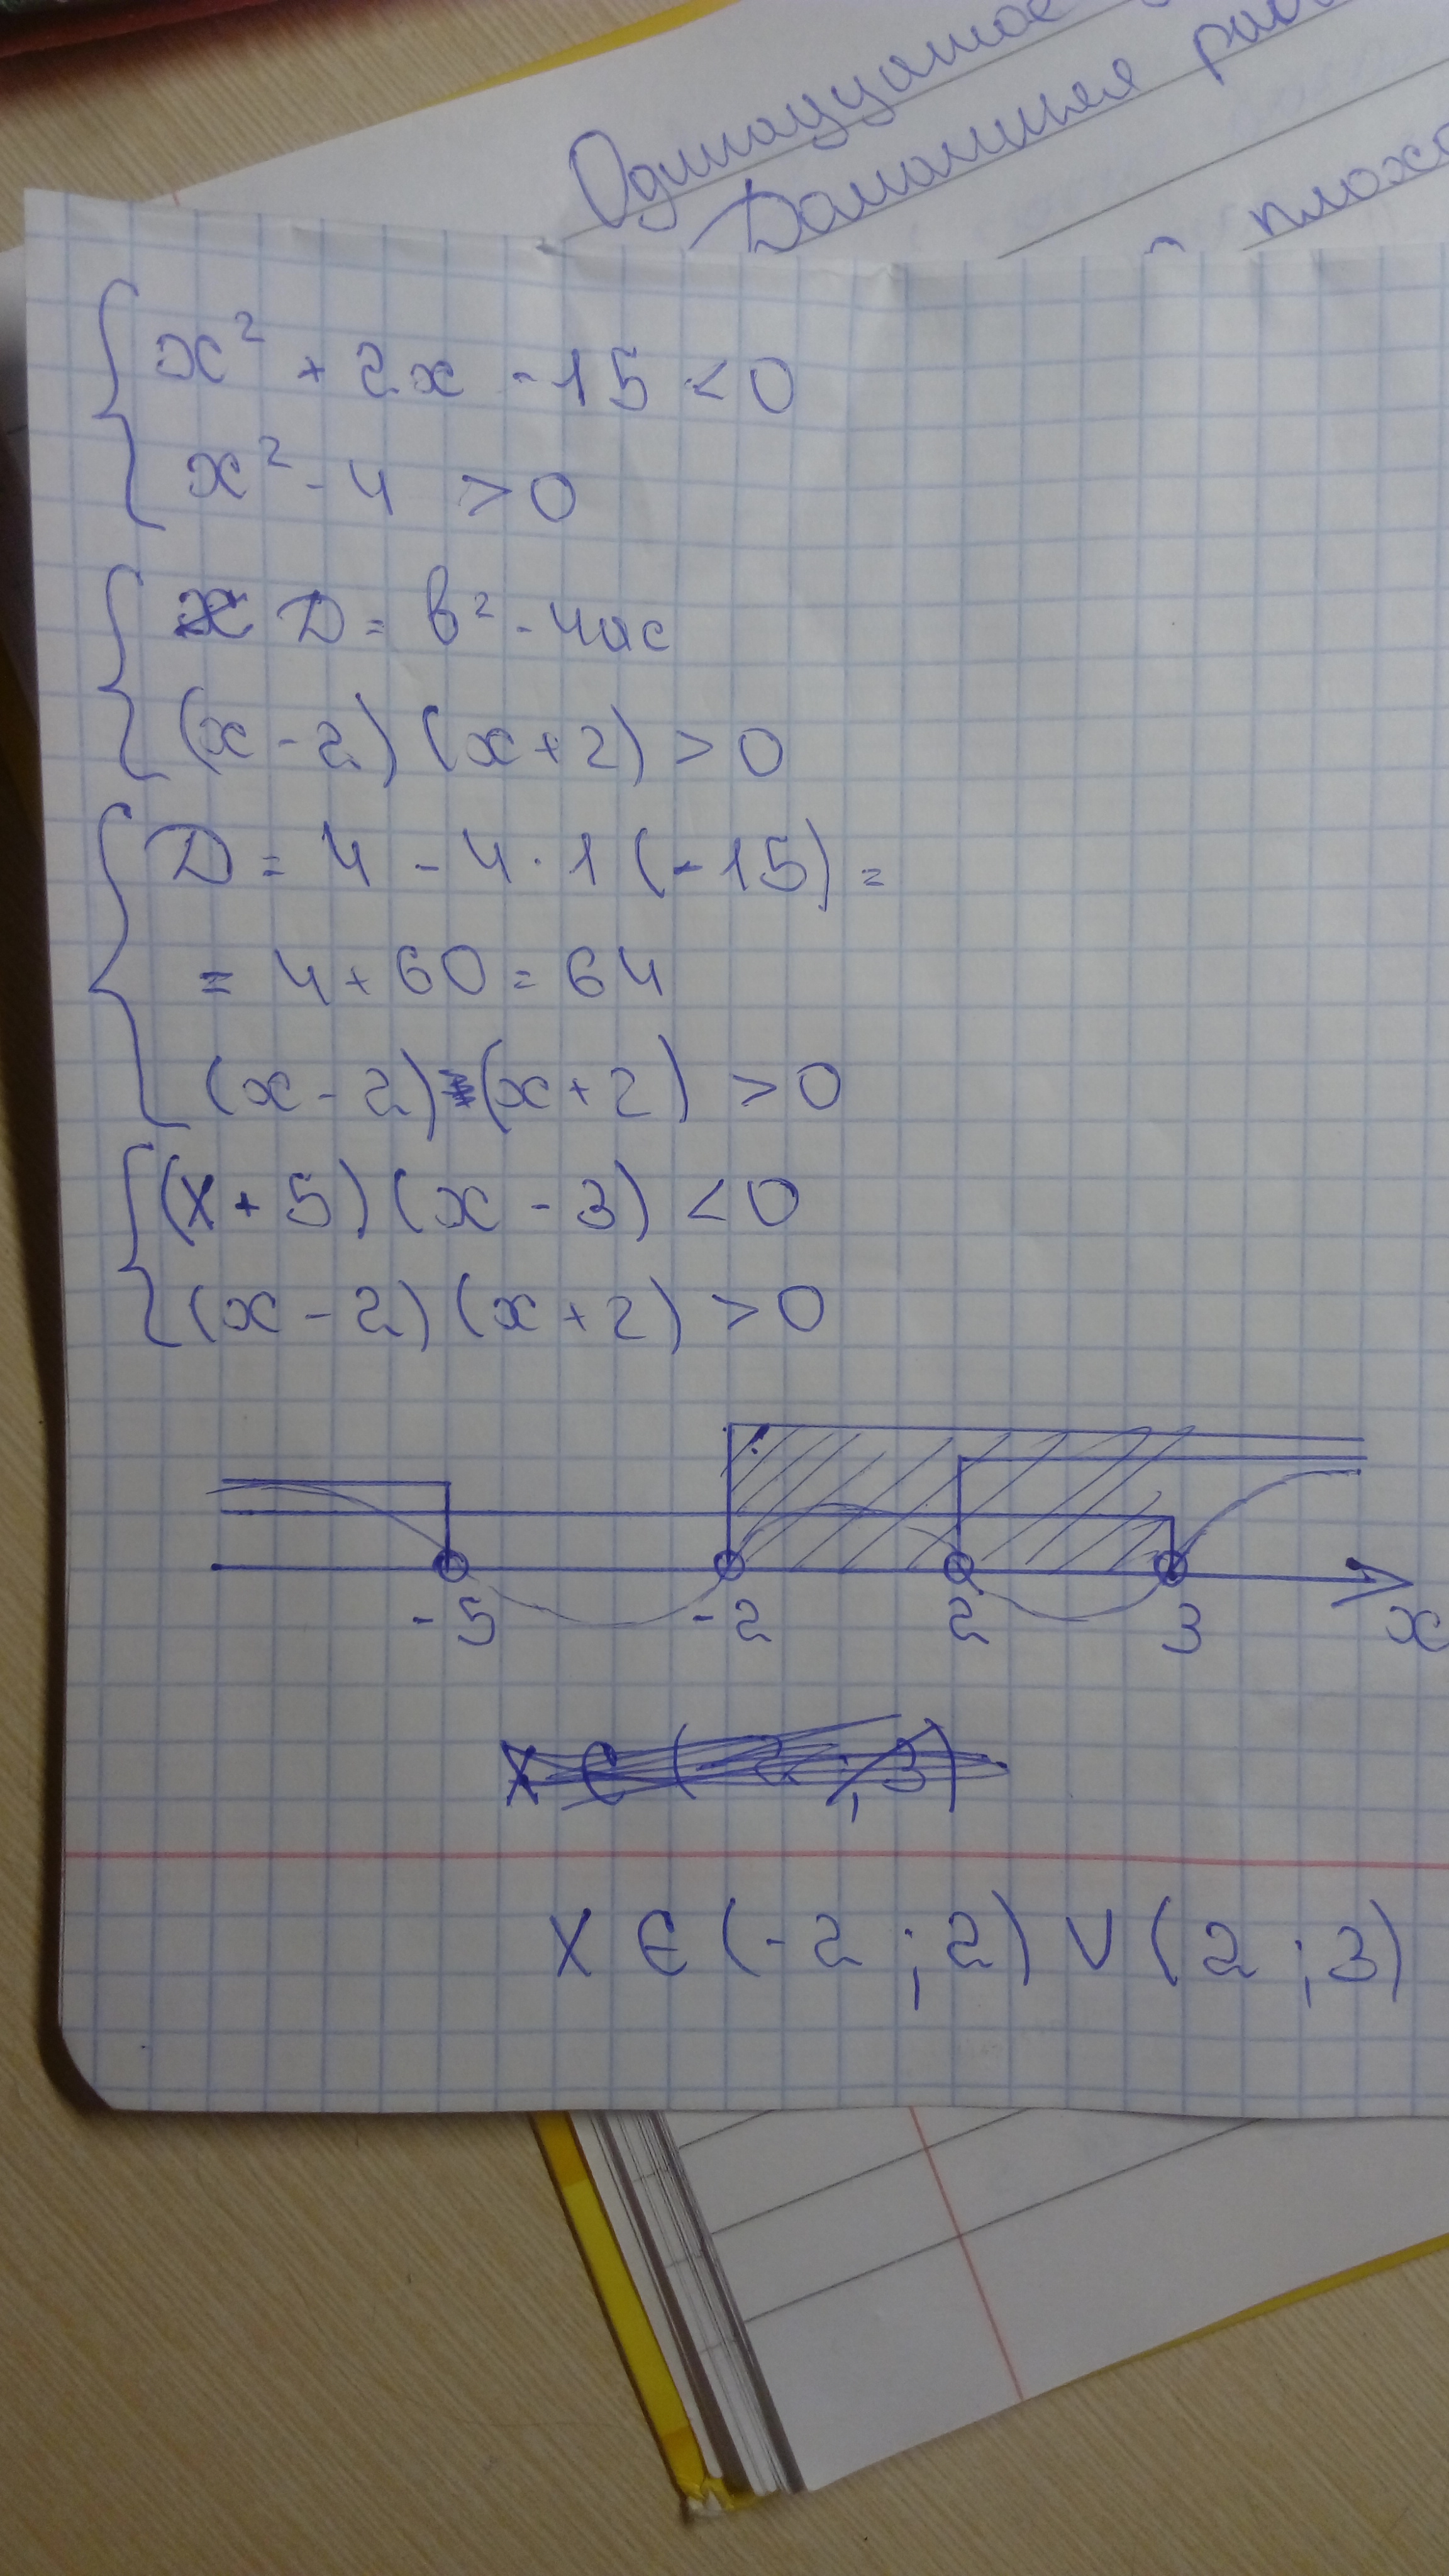 Одиннадцатое
Домашняя
x² + 2x - 15 < 0
x² - 4 > 0
D = b² - 4ac
(x - 2) (x + 2) > 0
D = 4 - 4 · 1 (-15) =
= 4 + 60 = 64
(x - 2) (x + 2) > 0
(x + 5) (x - 3) < 0
(x - 2) (x + 2) > 0
-5 -2 2 3 x
x ∈ (-2 ; 2) ∪ (2 ; 3)